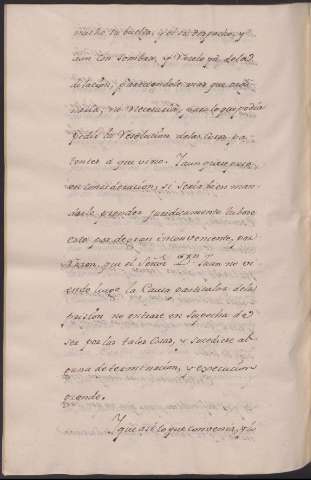 mucho su buelta, y el su despacho, y
aun con sombra, y recelo ya de la
dilacion, pareciendole mas que ordi
naria, no necesaria, para lo que podia
pedir la resolucion de las cosas pa
tentes a que vino. Y aunque se puso
en consideracion, si seria bien man
darle prender juridicamente, tubose
esto por de gran inconveniente, por
razon, que el Señor Dn. Juan no vi
endo luego la Causa particular de la
prision no entrase en sospecha de
ser por las tales cosas, y sucediese al
guna determinacion, y execucion
grande.
Y que asi lo que convenia, y lo